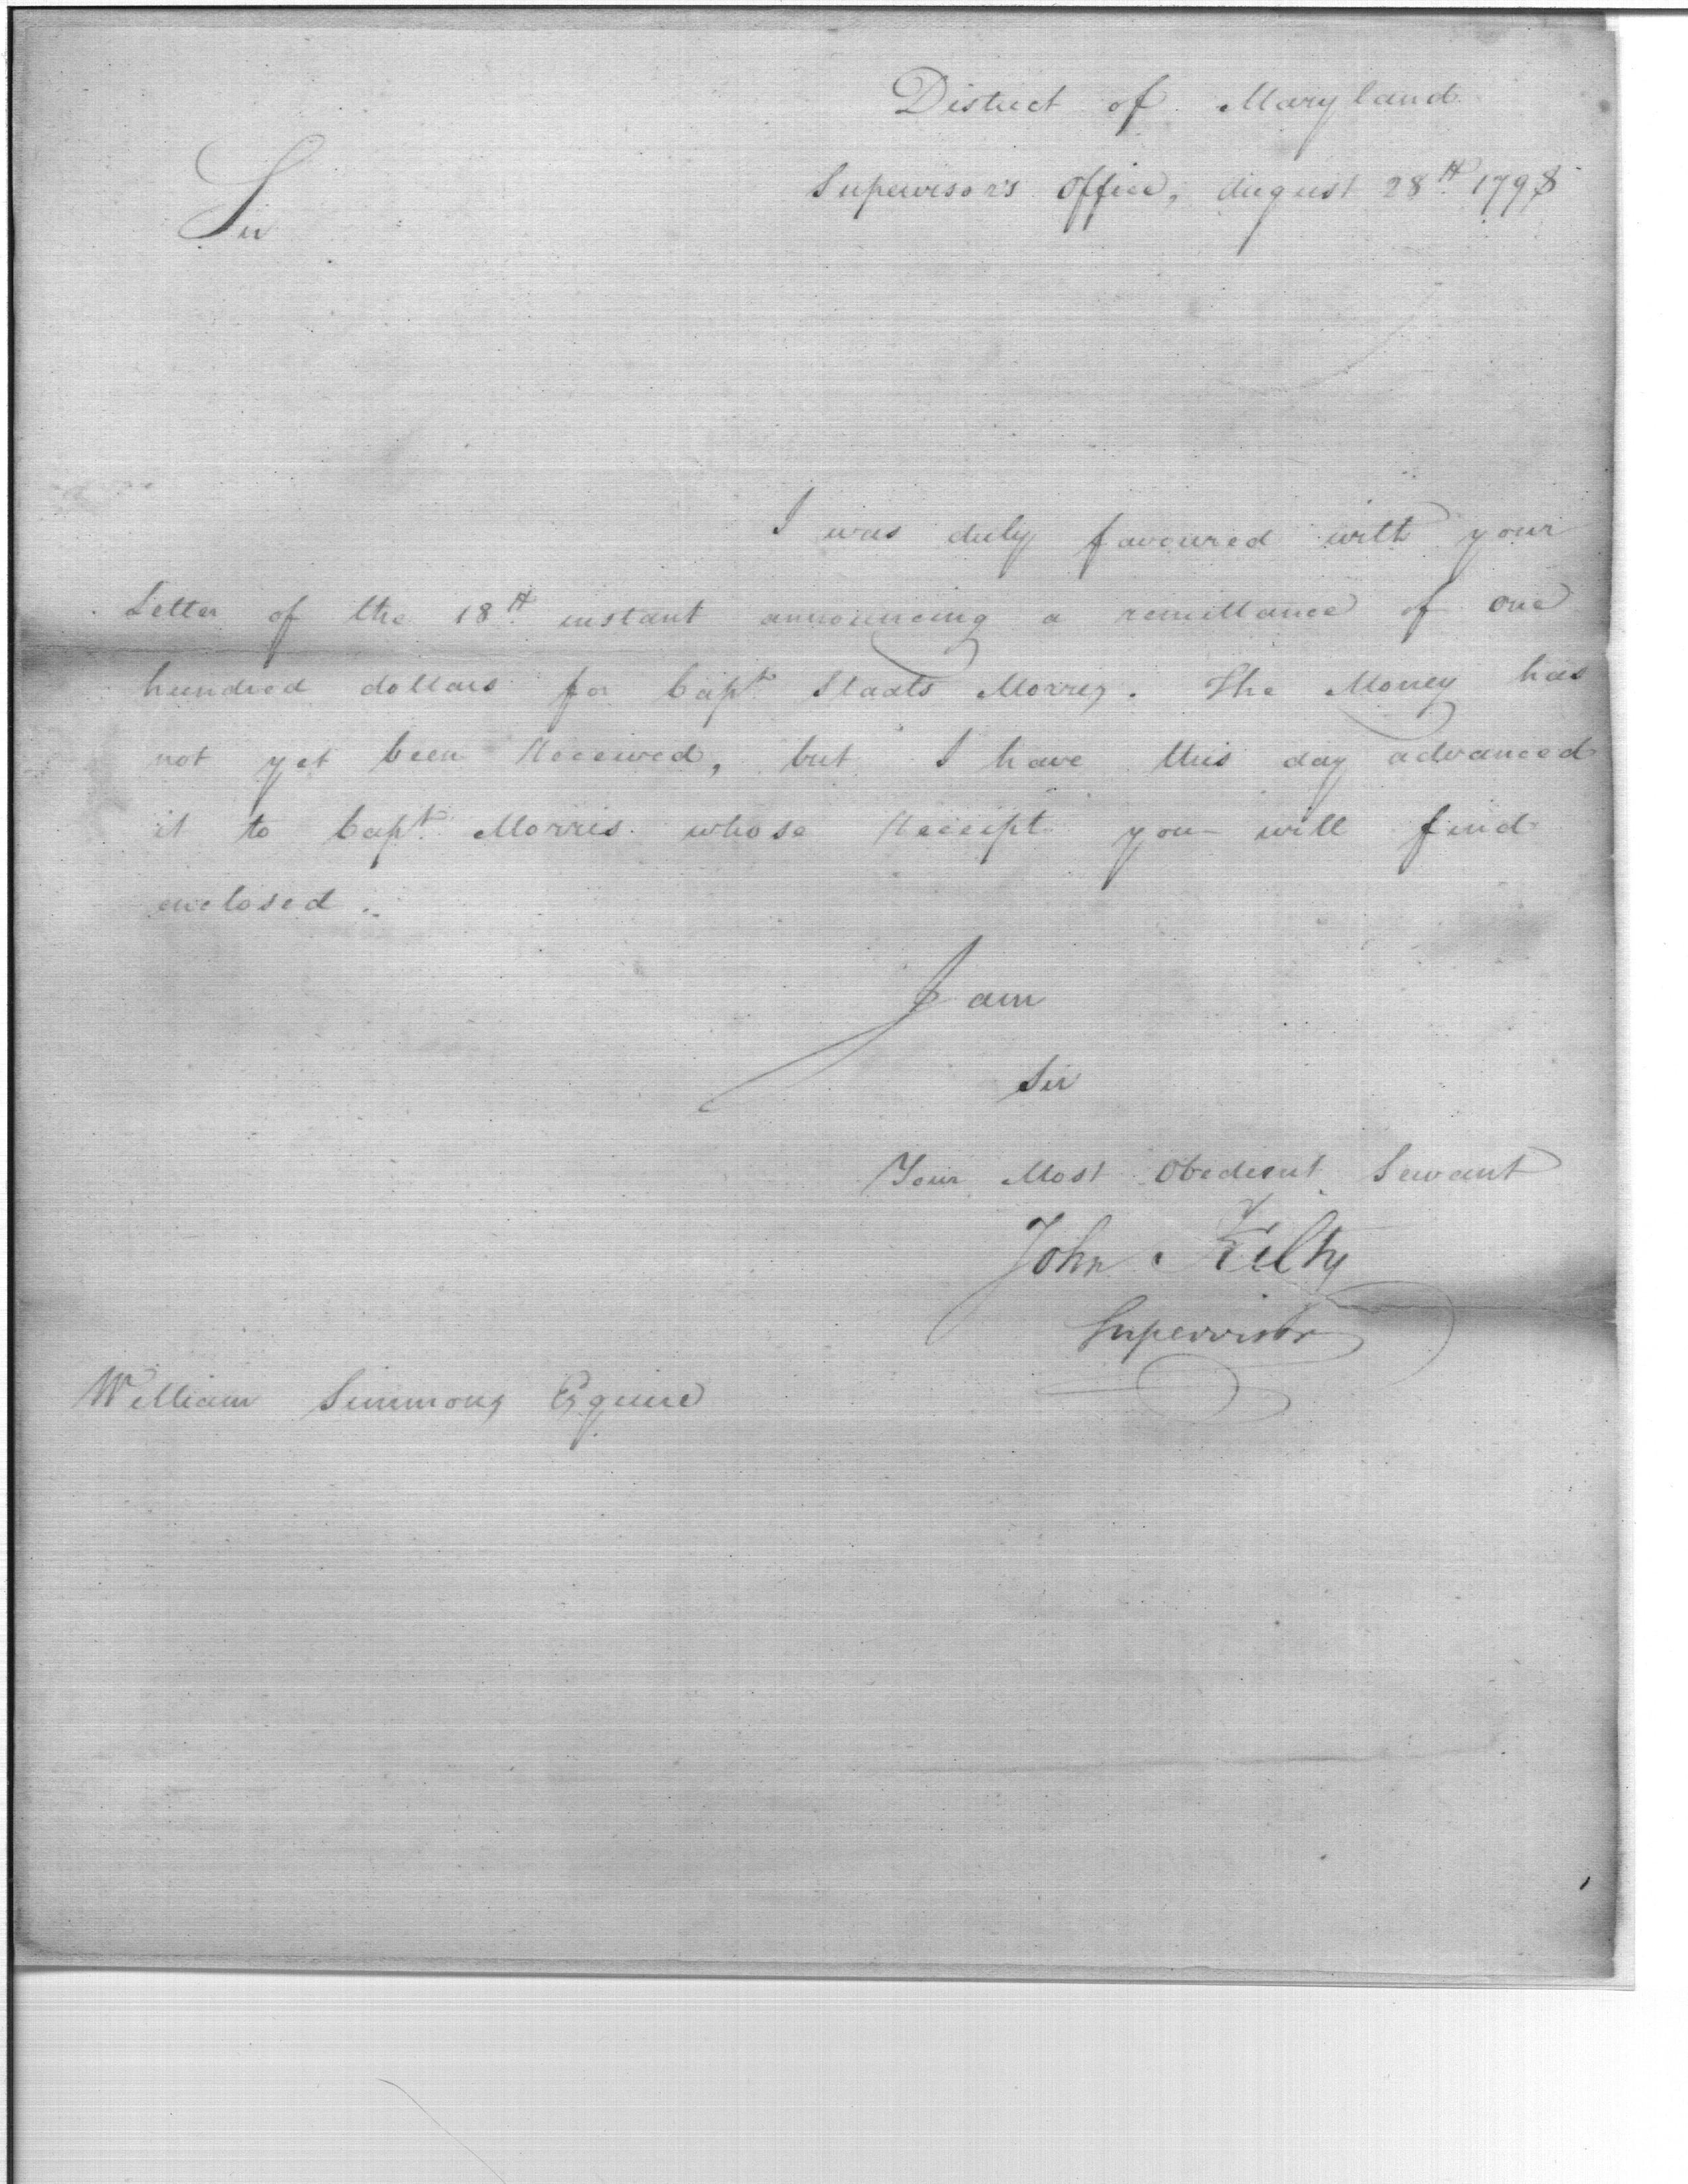 District of Maryland
Supervisor's Office, August 28th 1798
Sir
I was duly favoured with your
Letter of the 18th instant announcing a remittance of one
hundred dollars for Capt Staats Morris. The Money has
not yet been Received, but I have this day advanced
it to Capt Morris whose Receipt you will find
enclosed.
I am
Sir
Your Most Obedient Servant
John Kilty
Supervisor
William Simmons Esquire